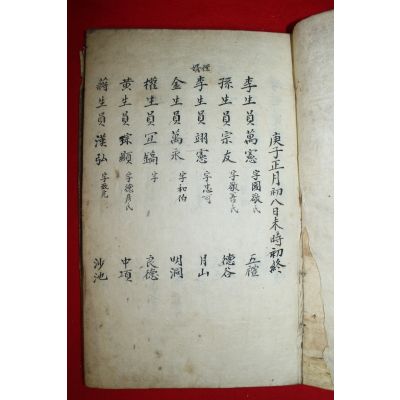 庚子正月初八日未時初終
李生員萬憲 字國敬氏 五禮
孫生員宗友 字敬善氏 德谷
李生員翊憲 字忠可 月山
金生員萬永 字和伯 明洞
權生員 字 良德
黃生員 顯 字德彦氏 中項
蔣生員漢弘 字 沙池